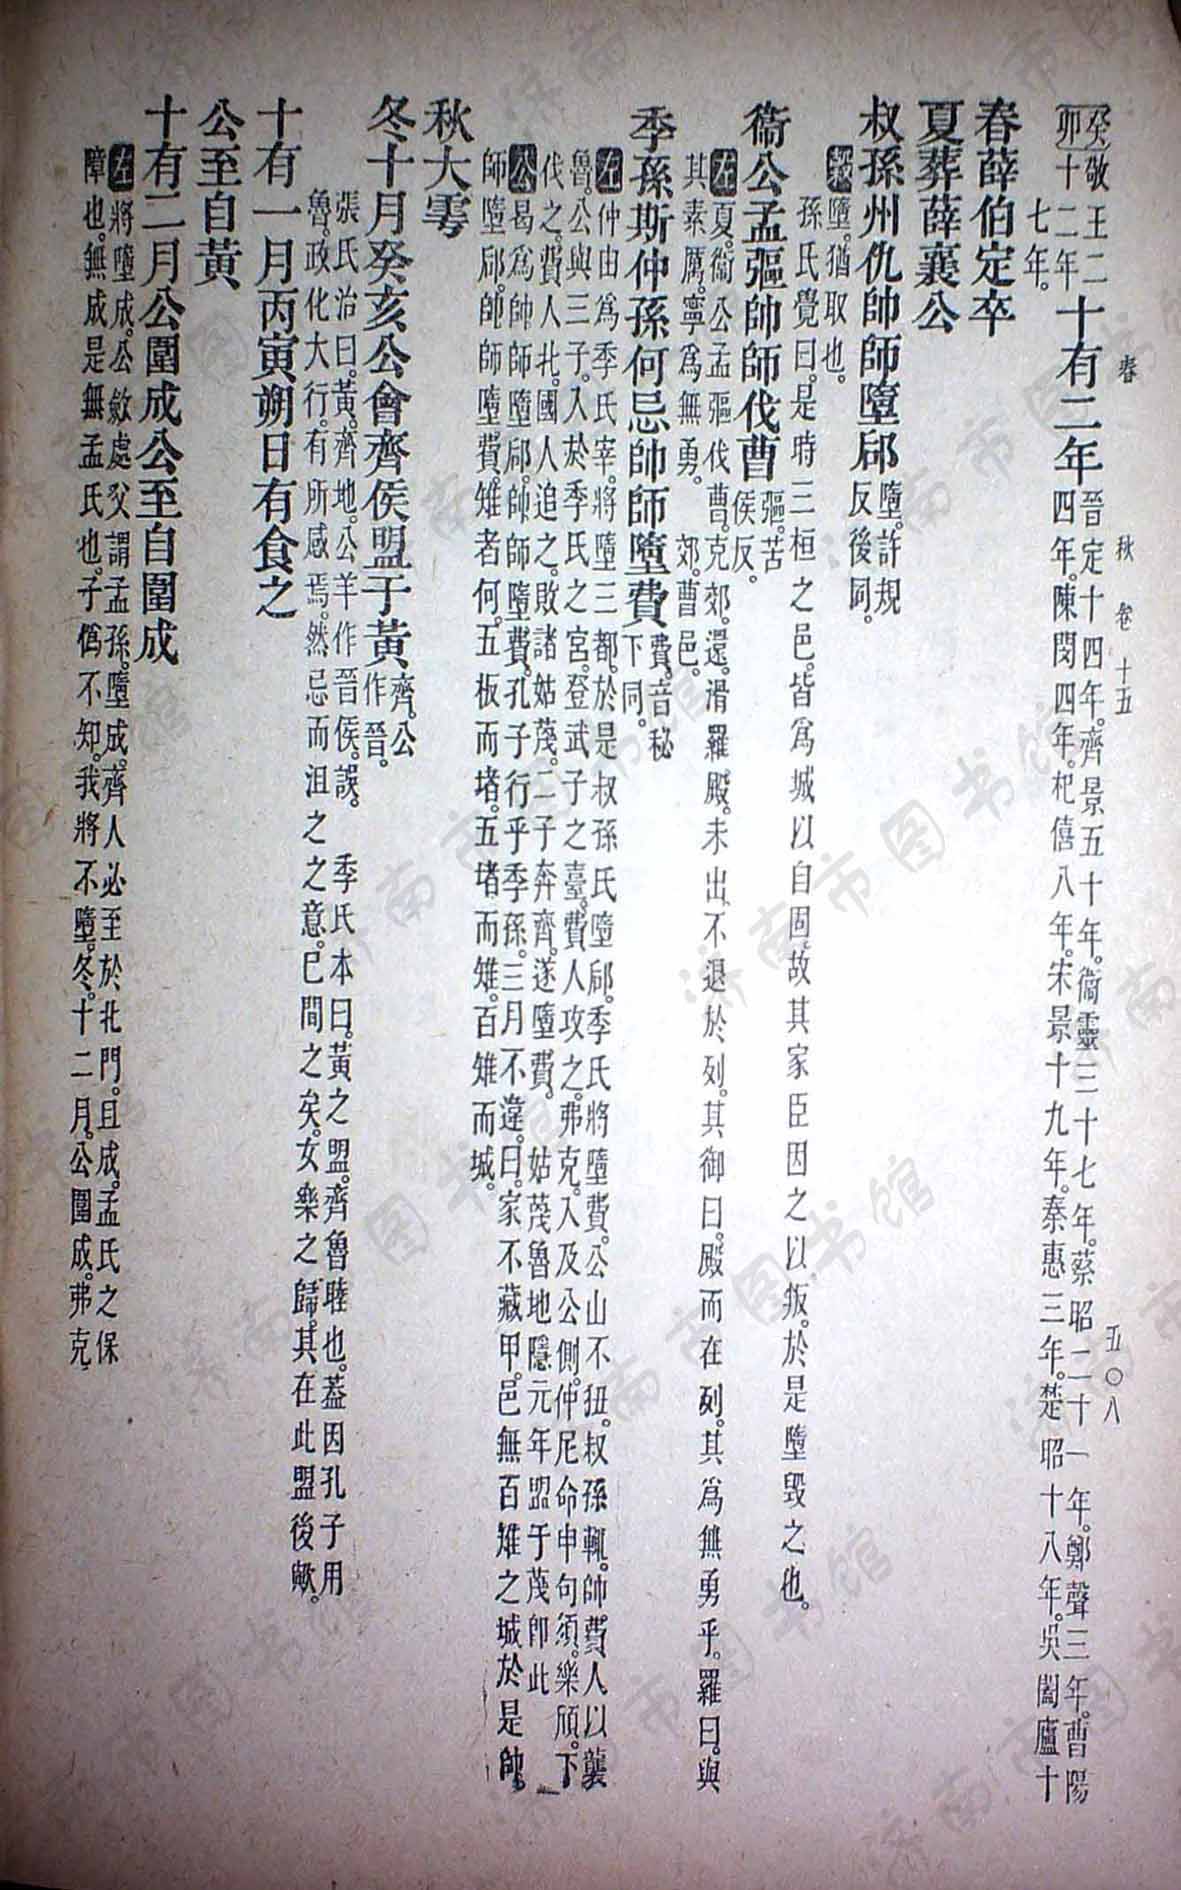 春秋 卷十五 五〇八
癸卯 敬王二十二年 七年。 十有二年 晉定十四年。齊景五十年。衞靈三十七年。蔡昭二十一年。鄭聲三年。曹陽
四年。陳閔四年。杞僖八年。宋景十九年。秦惠三年。楚昭十八年。吳闔廬十
春薛伯定卒
夏葬薛襄公
叔孫州仇帥師墮郈 墮。許規反後同。
穀 墮。猶取也。
孫氏覺曰。是時三桓之邑。皆爲城以自固。故其家臣因之以叛。於是墮毀之也。
衞公孟彄帥師伐曹 彄。苦侯反。
左 夏。衞公孟彄伐曹。克郊。還。滑羅殿。未出不退於列。其御曰。殿而在列。其爲無勇乎。羅曰。與
其素厲。寧爲無勇。 郊。曹邑。
季孫斯仲孫何忌帥師墮費 費。音祕下同。
左 仲由爲季氏宰。將墮三都。於是叔孫氏墮郈。季氏將墮費。公山不狃。叔孫輒。帥費人以襲
魯。公與三子。入於季氏之宮。登武子之臺。費人攻之。弗克。入及公側。仲尼命申句須。樂頎。下
伐之。費人北。國人追之。敗諸姑蔑。二子奔齊。遂墮費。 姑蔑魯地隱元年盟于蔑卽此
公 曷爲帥師墮郈。帥師墮費。孔子行乎季孫。三月不違。曰。家不藏甲。邑無百雉之城。於是帥
師墮郈。帥師墮費。雉者何。五板而堵。五堵而雉。百雉而城。
秋大雩
冬十月癸亥公會齊侯盟于黃 齊。公作晉。
張氏治曰。黃。齊地。公羊作晉侯。誤。 季氏本曰。黃之盟。齊魯睦也。蓋因孔子用
魯。政化大行。有所感焉。然忌而沮之之意。已間之矣。女樂之歸。其在此盟後歟。
十有一月丙寅朔日有食之
公至自黃
十有二月公圍成公至自圍成
左 將墮成。公斂處父謂孟孫。墮成。齊人必至於北門。且成。孟氏之保
障也。無成是無孟氏也。子僞不知。我將不墮。冬。十二月。公圍成。弗克